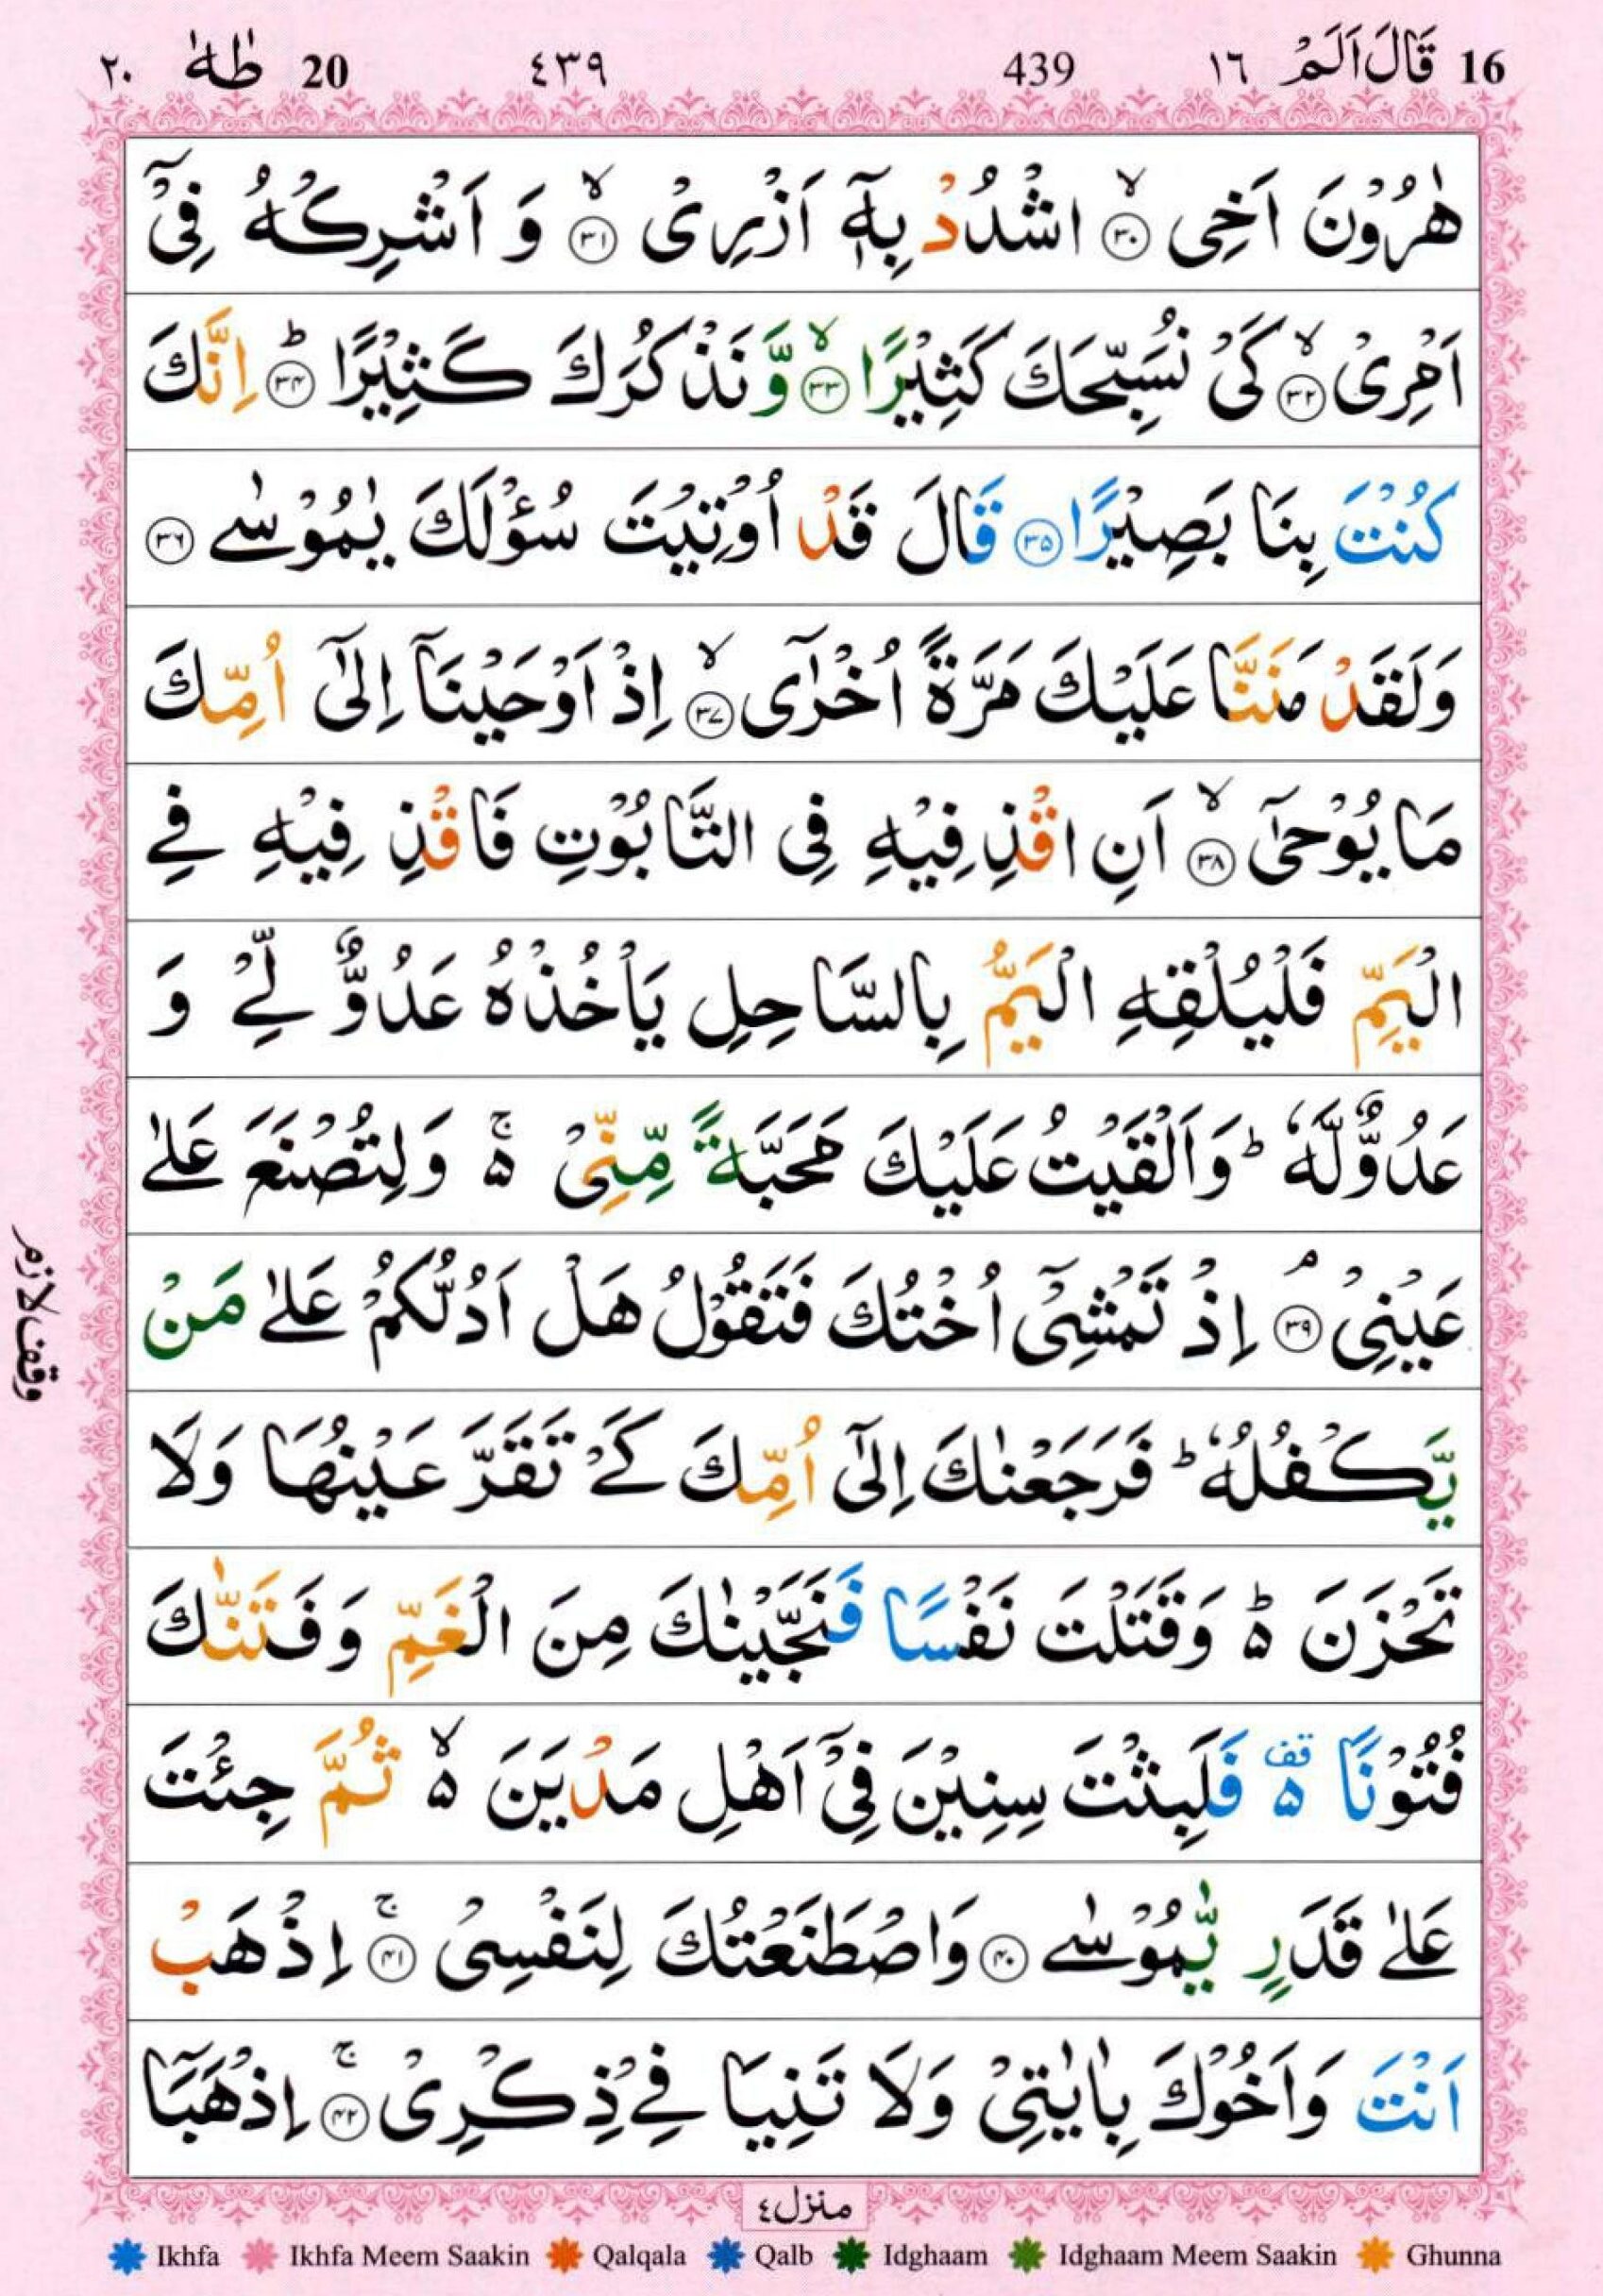 16 قَالَ اَلَمْ ١٦ 439 ٤٣٩ 20 طٰهٰ ٢٠
هٰرُوْنَ اَخِى ۙ‏﴿۳۰﴾ اشْدُدْ بِهٖۤ اَزْرِىْ ۙ‏﴿۳۱﴾ وَ اَشْرِكْهُ فِىْۤ
اَمْرِىْ ۙ‏﴿۳۲﴾ كَىْ نُسَبِّحَكَ كَثِيْرًا ۙ‏﴿۳۳﴾ وَّنَذْكُرَكَ كَثِيْرًا ؕ‏﴿۳۴﴾ اِنَّكَ
كُنْتَ بِنَا بَصِيْرًا‏﴿۳۵﴾ قَالَ قَدْ اُوْتِيْتَ سُؤْلَكَ يٰمُوْسٰى‏﴿۳۶﴾
وَلَقَدْ مَنَنَّا عَلَيْكَ مَرَّةً اُخْرٰٓى ۙ‏﴿۳۷﴾ اِذْ اَوْحَيْنَاۤ اِلٰٓى اُمِّكَ
مَا يُوْحٰٓى ۙ‏﴿۳۸﴾ اَنِ اقْذِفِيْهِ فِى التَّابُوْتِ فَاقْذِفِيْهِ فِى
الْيَمِّ فَلْيُلْقِهِ الْيَمُّ بِالسَّاحِلِ يَاْخُذْهُ عَدُوٌّ لِّىْ وَ
عَدُوٌّ لَّهٗ ؕ وَاَلْقَيْتُ عَلَيْكَ مَحَبَّةً مِّنِّىْ ۚ۬ وَلِتُصْنَعَ عَلٰى
عَيْنِىْ ۘ‏﴿۳۹﴾ اِذْ تَمْشِىْۤ اُخْتُكَ فَتَقُوْلُ هَلْ اَدُلُّكُمْ عَلٰى مَنْ
وقف لازم
يَّكْفُلُهٗ ؕ فَرَجَعْنٰكَ اِلٰٓى اُمِّكَ كَىْ تَقَرَّ عَيْنُهَا وَلَا
تَحْزَنَ ؕ۬ وَقَتَلْتَ نَفْسًا فَنَجَّيْنٰكَ مِنَ الْغَمِّ وَفَتَنّٰكَ
فُتُوْنًا ۵ قف فَلَبِثْتَ سِنِيْنَ فِىْۤ اَهْلِ مَدْيَنَ ۙ۬ ثُمَّ جِئْتَ
عَلٰى قَدَرٍ يّٰمُوْسٰى‏﴿۴۰﴾ وَاصْطَنَعْتُكَ لِنَفْسِىْ ۚ‏﴿۴۱﴾ اِذْهَبْ
اَنْتَ وَاَخُوْكَ بِاٰيٰتِىْ وَلَا تَنِيَا فِىْ ذِكْرِىْ ۚ‏﴿۴۲﴾ اِذْهَبَاۤ
منزل ٤
Ikhfa Ikhfa Meem Saakin Qalqala Qalb Idghaam Idghaam Meem Saakin Ghunna